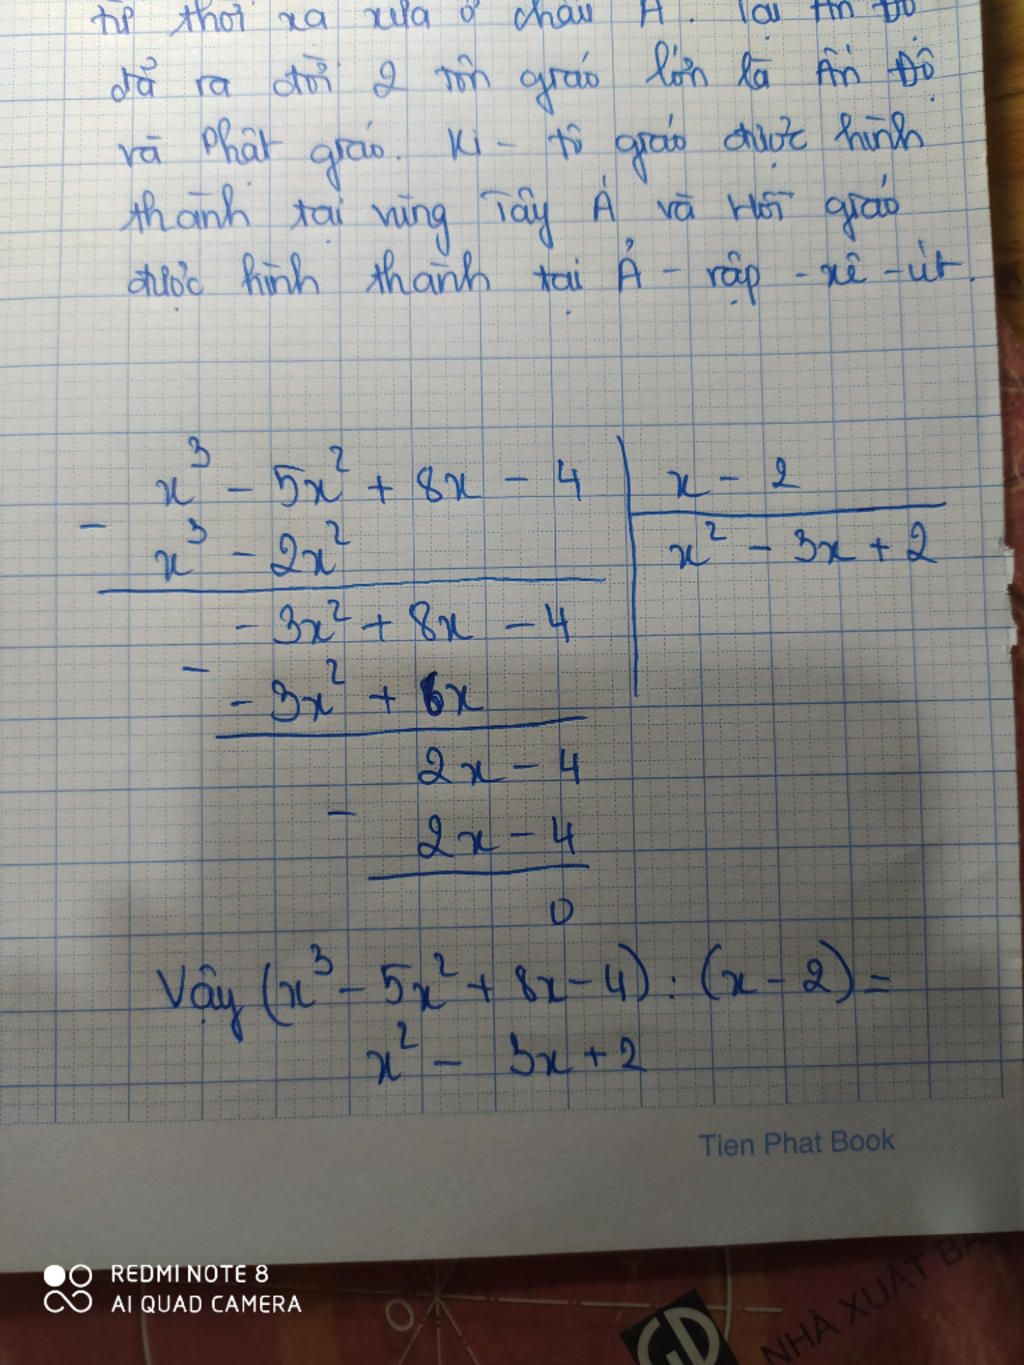 từ thời xa xưa ở châu Á. Tại Ấn Độ
đả ra đời 2 tôn giáo lớn là Ấn Độ
và Phật giáo. Ki - tô giáo được hình
thành tại vùng Tây Á và Hồi giáo
được hình thành tại Ả - rập - xê - út.
x³ - 5x² + 8x - 4 | x - 2
- x³ - 2x² | x² - 3x + 2
- 3x² + 8x - 4
- - 3x² + 6x
2x - 4
- 2x - 4
0
Vậy (x³ - 5x² + 8x - 4) : (x - 2) =
x² - 3x + 2
Tien Phat Book
REDMI NOTE 8
AI QUAD CAMERA
GD
NHÀ XUẤT BẢ